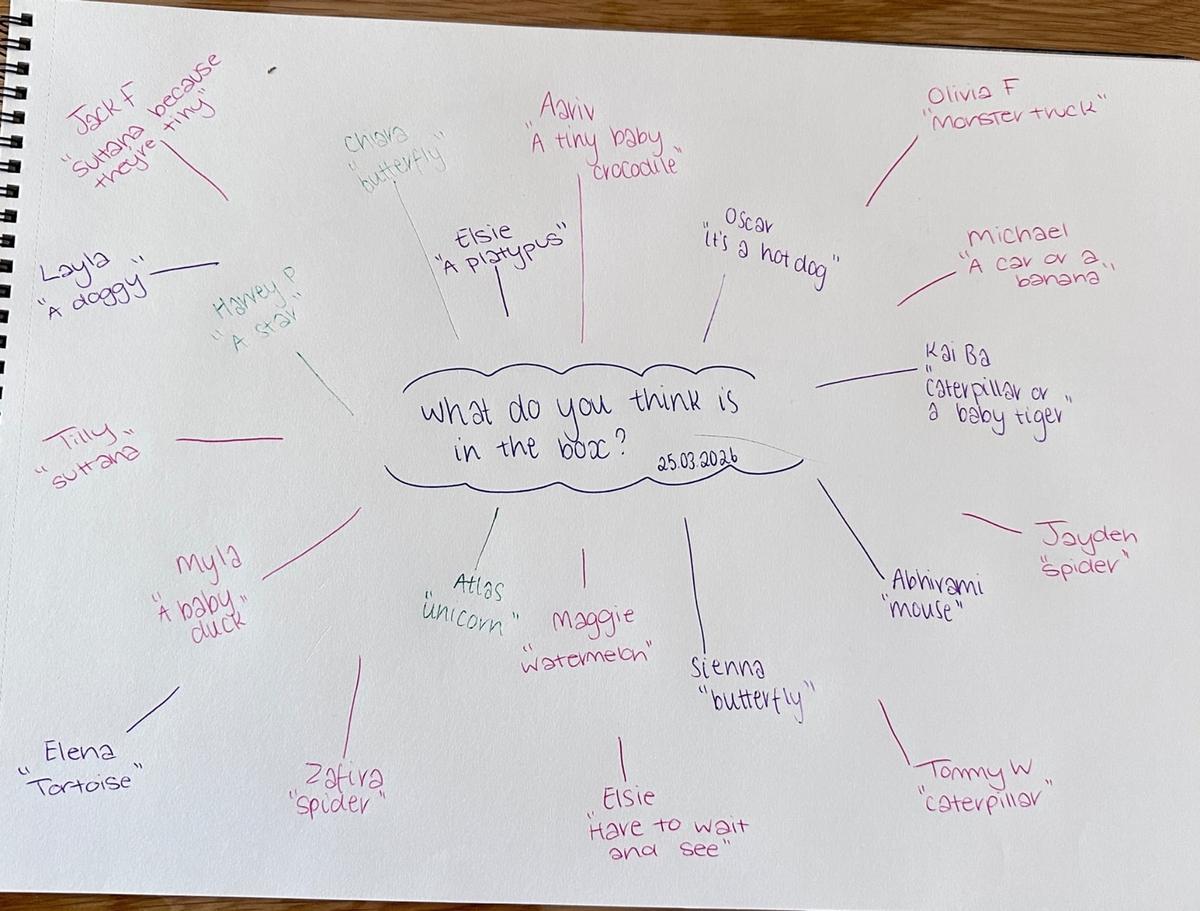 Jack F
"Sultana because
they're tiny"
Chiara
"butterfly"
Aariv
"A tiny baby
crocodile"
Olivia F
"Monster truck"
Layla
"A doggy"
Harvey P
"A star"
Elsie
"A platypus"
Oscar
"it's a hot dog"
Michael
"A car or a
banana"
Kai Ba
"caterpillar or
a baby tiger"
What do you think is
in the box?
25.03.2026
Tilly
"sultana"
Myla
"A baby
duck"
Atlas
"unicorn"
Maggie
"Watermelon"
Sienna
"butterfly"
Abhirami
"mouse"
Jayden
"spider"
Elena
"Tortoise"
Zafira
"spider"
Elsie
"Have to wait
and see"
Tommy W
"caterpillar"